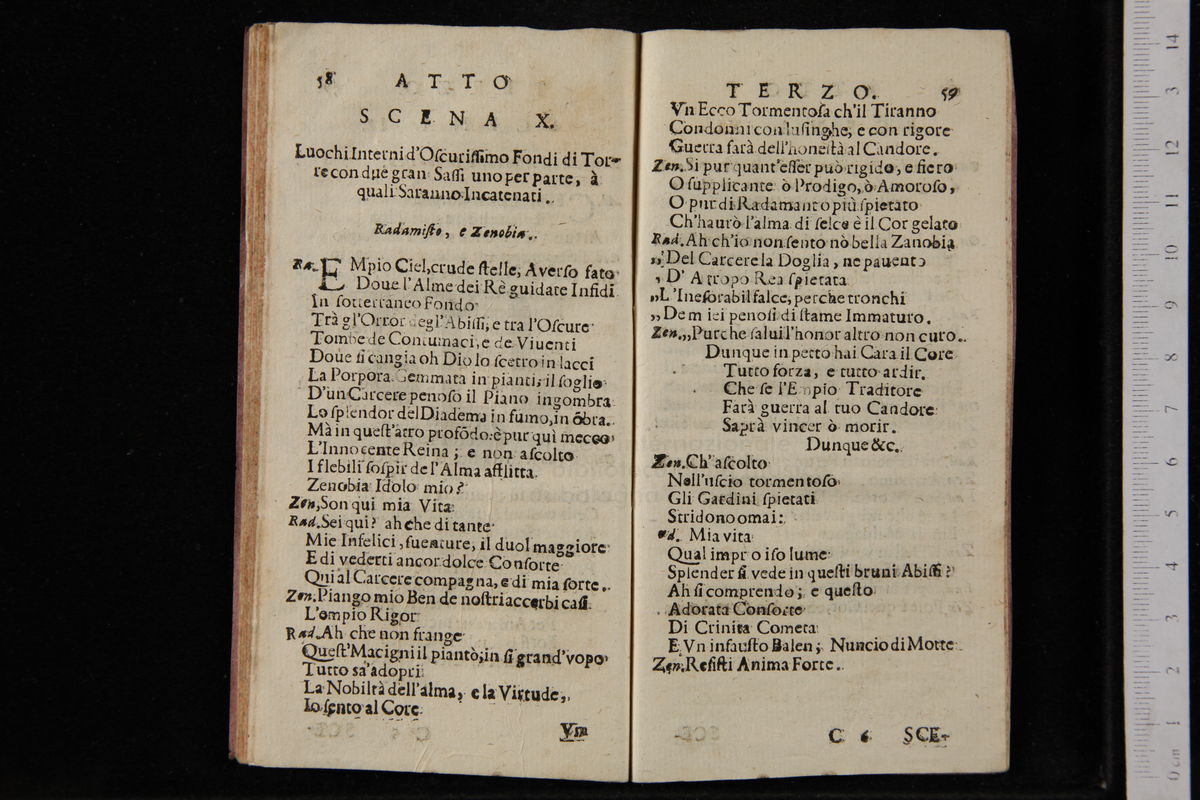 58 ATTO
SCENA X.
Luochi Interni d'Oſcuriſſimo Fondi di Tor-
re con due gran Saſſi uno per parte, à
quali Saranno Incatenati.
Radamiſto, e Zenobia.
Ra. EMpio Ciel, crude ſtelle, Averſo fato
Doue l'Alme dei Rè guidate Infidi
In ſotterraneo Fondo
Trà gl'Orror degl'Abiſſi, e tra l'Oſcure
Tombe de Contumaci, e de Viuenti
Doue ſi cangia oh Dio lo ſcetro in lacci
La Porpora Gemmata in pianti; il ſoglio
D'un Carcere penoſo il Piano ingombra
Lo ſplendor del Diadema in fumo, in õbra.
Mà in queſt'atro profõdo: è pur quì mecco
L'Innocente Reina; e non aſcolto
I flebili ſoſpir de l'Alma afflitta
Zenobia Idolo mio?
Zen, Son qui mia Vita
Rad. Sei qui? ah che di tante
Mie Infelici, ſuenture, il duol maggiore
E di vederti ancor dolce Conſorte
Qui al Carcere compagna, e di mia ſorte.
Zen. Piango mio Ben de noſtri accerbi caſi
L'empio Rigor
Rad. Ah che non frange
Queſt'Macigni il piantò; in ſi grand'vopo
Tutto sa'adopri
La Nobiltà dell'alma, e la Virtude,
Io ſento al Core
Vm
TERZO. 59
Vn Ecco Tormentoſa ch'il Tiranno
Condonni con luſinghe, e con rigore
Guerra farà dell'honeſtà al Candore.
Zen. Si pur quant'eſſer può rigido, e fiero
O ſupplicante ò Prodigo, ò Amoroſo,
O pur di Radamanto più ſpietato
Ch'haurò l'alma di ſelce è il Cor gelato
Rad. Ah ch'io non ſento nò bella Zanobia
„ Del Carcere la Doglia, ne pauento
, D' Atropo Rea ſpietata
„ L'Ineſorabil falce, perche tronchi
„ De miei penoſi di ſtame Immaturo.
Zen. „ Purche ſalui l'honor altro non curo.
Dunque in petto hai Cara il Core
Tutto forza, e tutto ardir.
Che ſe l'Empio Traditore
Farà guerra al tuo Candore
Saprà vincer ò morir.
Dunque &c.
Zen. Ch'aſcolto
Nell'uſcio tormentoſo
Gli Gardini ſpietati
Stridono omai:
ad. Mia vita
Qual improiſo lume
Splender ſi vede in queſti bruni Abiſſi?
Ah ſi comprendo; e queſto
Adorata Conſorte
Di Crinita Cometa
E Vn infauſto Balen; Nuncio di Morte
Zen. Reſiſti Anima Forte.
C 6 SCE-
14
3
12
2
11
10
9
8
7
6
5
4
3
2
1
0 cm